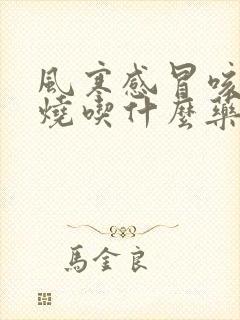 風寒感冒咳
燒喫什麼藥
馬金良